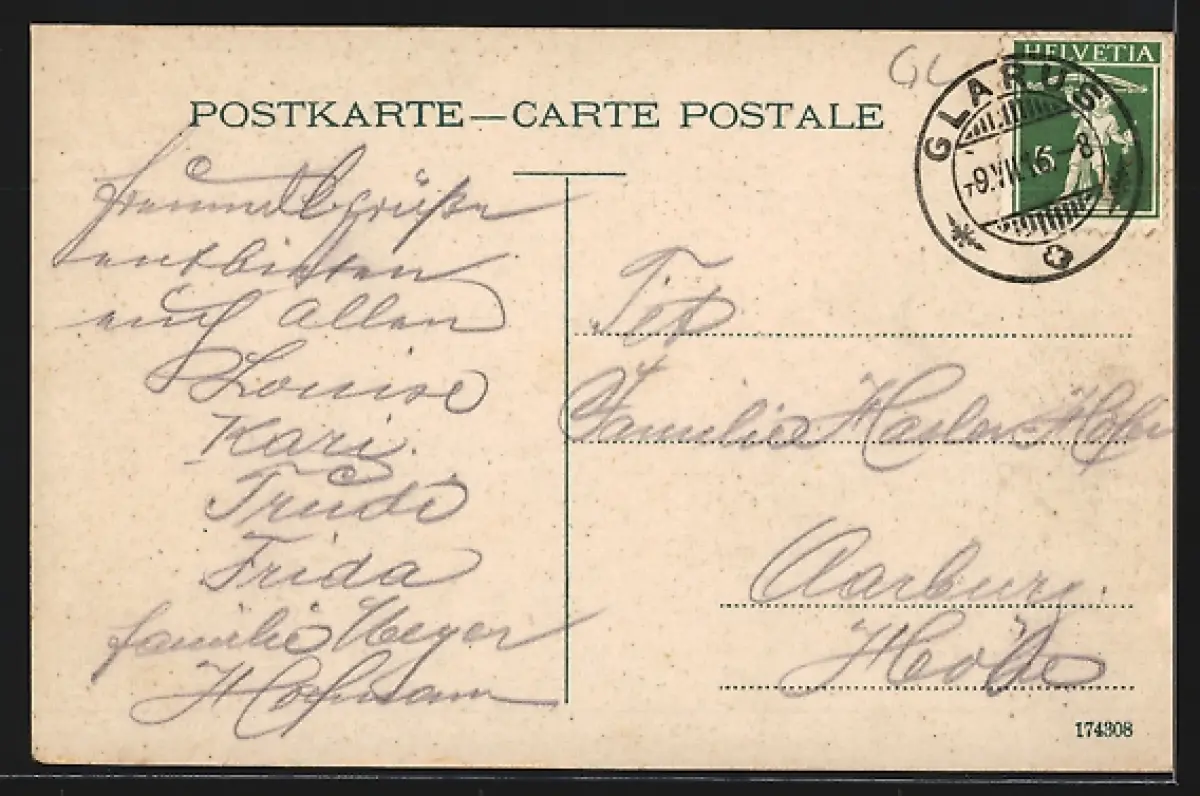 POSTKARTE — CARTE POSTALE
GL
HELVETIA
GLARUS
9.VII.16.-8
5
Freundl. Grüße
entbieten
euch Allen
Louise
Kari.
Trudi
Frida
Familie Meyer
Hofmann
Tit
Familie
Aarburg.
174308